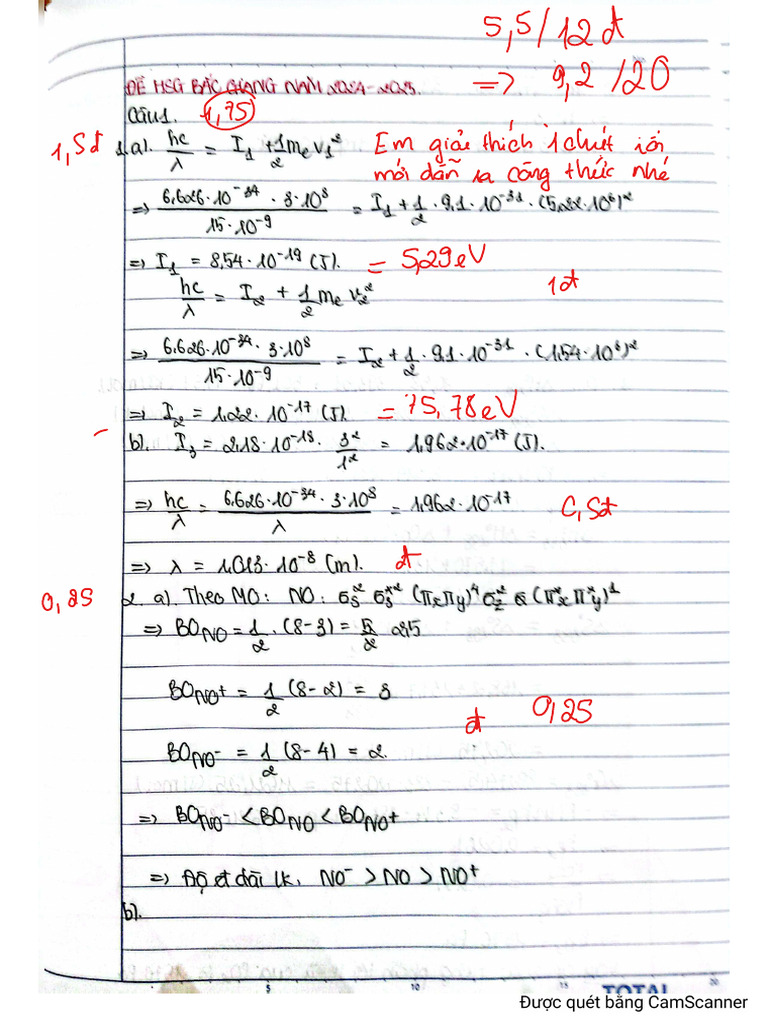 5,5/12 đ
=> 9,2/20
ĐỀ HSG BẮC GIANG NĂM 2024-2025.
Câu 1. 1,75
1,5đ 1.a). hc/λ = I₁ + 1/2 mₑv₁² Em giải thích 1 chút rồi
mới dẫn ra công thức nhé
=> (6,626.10⁻³⁴ . 3.10⁸)/(15.10⁻⁹) = I₁ + 1/2 . 9,1.10⁻³¹ . (5,22.10⁶)²
=> I₁ = 8,54.10⁻¹⁹ (J). = 5,29eV
hc/λ = I₂ + 1/2 mₑ v₂² 1đ
=> (6,626.10⁻³⁴ . 3.10⁸)/(15.10⁻⁹) = I₂ + 1/2 . 9,1.10⁻³¹ . (1,54.10⁶)²
=> I₂ = 1,22.10⁻¹⁷ (J). = 75,78eV
b). I₃ = 2,18.10⁻¹⁸ . 3²/1² = 1,962.10⁻¹⁷ (J).
=> hc/λ = (6,626.10⁻³⁴ . 3.10⁸)/λ = 1,962.10⁻¹⁷ 0,5đ
=> λ = 1,013.10⁻⁸ (m). đ
0,25 2. a). Theo MO: NO: σₛ² σₛ*² (πₓπy)⁴ σz² (πₓ*πy*)¹
=> BO NO = 1/2 . (8-3) = 2,5
BO NO⁺ = 1/2 (8-2) = 3
đ 0,25
BO NO⁻ = 1/2 (8-4) = 2.
=> BO NO⁻ < BO NO < BO NO⁺
=> Độ dài lk. NO⁻ > NO > NO⁺
b).
5 10 15 20
TOTAL
Được quét bằng CamScanner